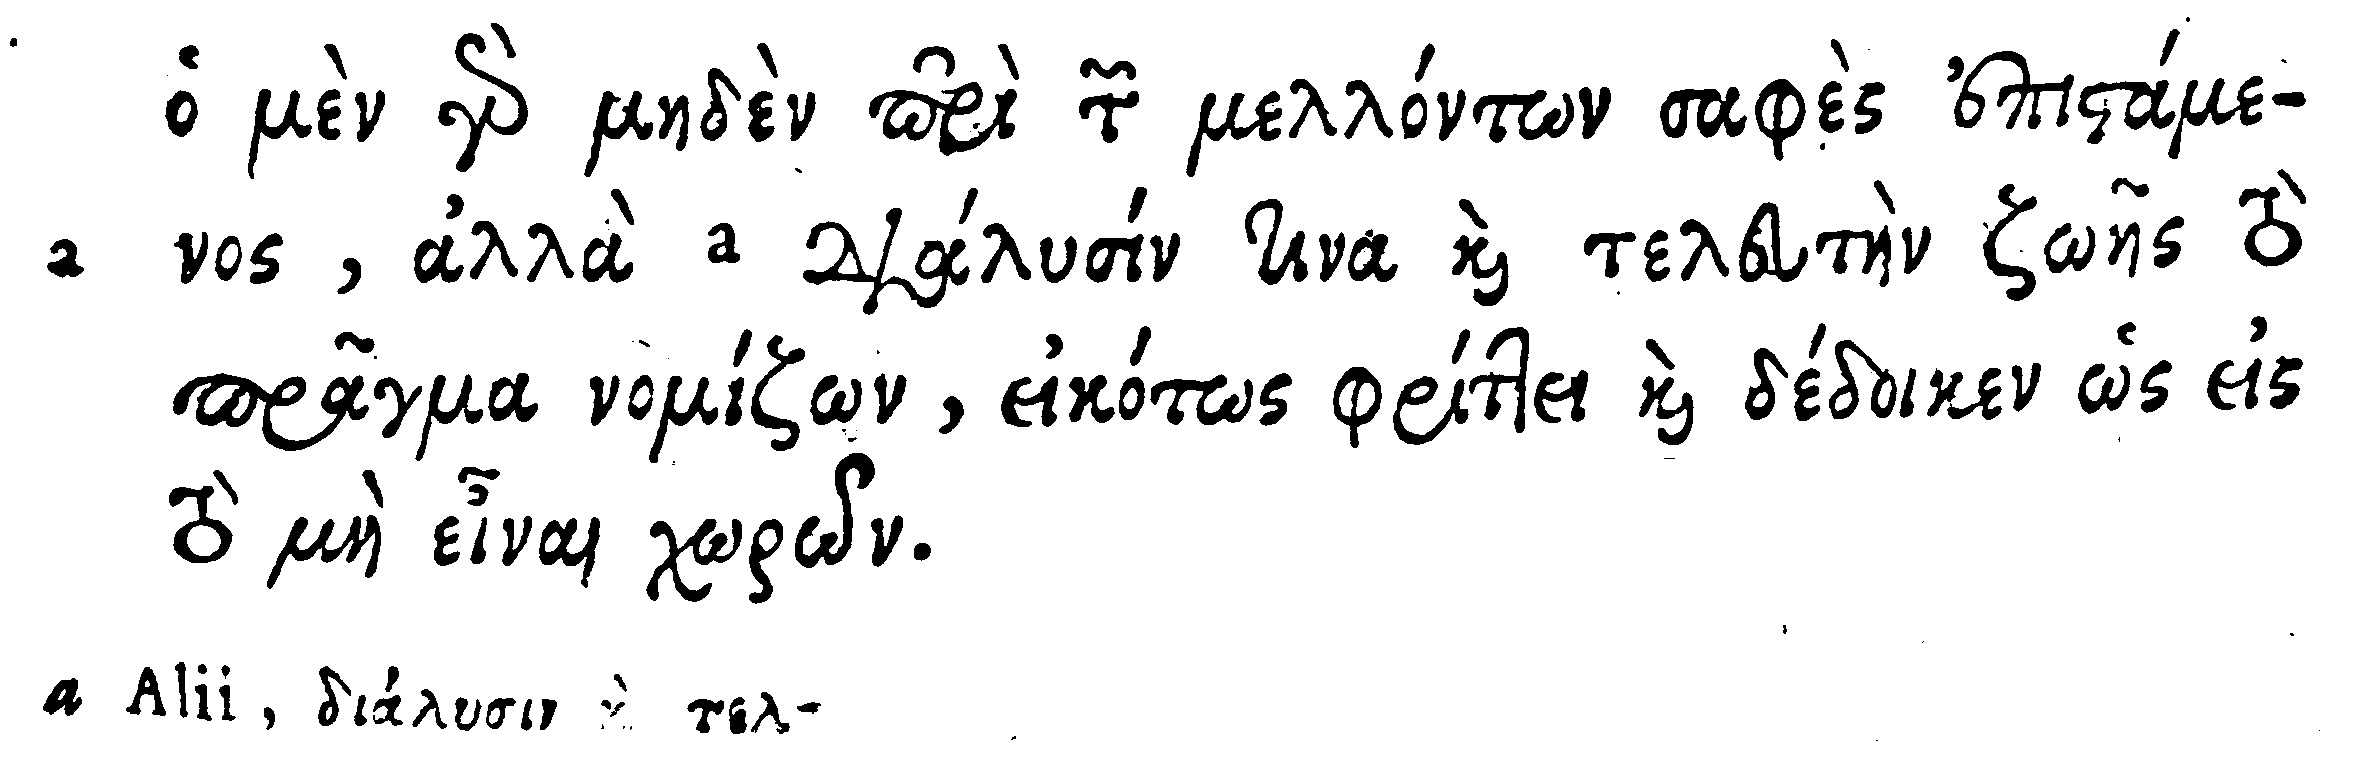 ὁ μὲν γὰρ μηδὲν περὶ τῶν μελλόντων σαφὲς ἐπιστάμε-
a νος, ἀλλὰ a διάλυσίν τινα καὶ τελευτὴν ζωῆς τὸ
πρᾶγμα νομίζων, εἰκότως φρίττει καὶ δέδοικεν ὡς εἰς
τὸ μὴ εἶναι χωρῶν.
a Alii, διάλυσιν καὶ τελ-